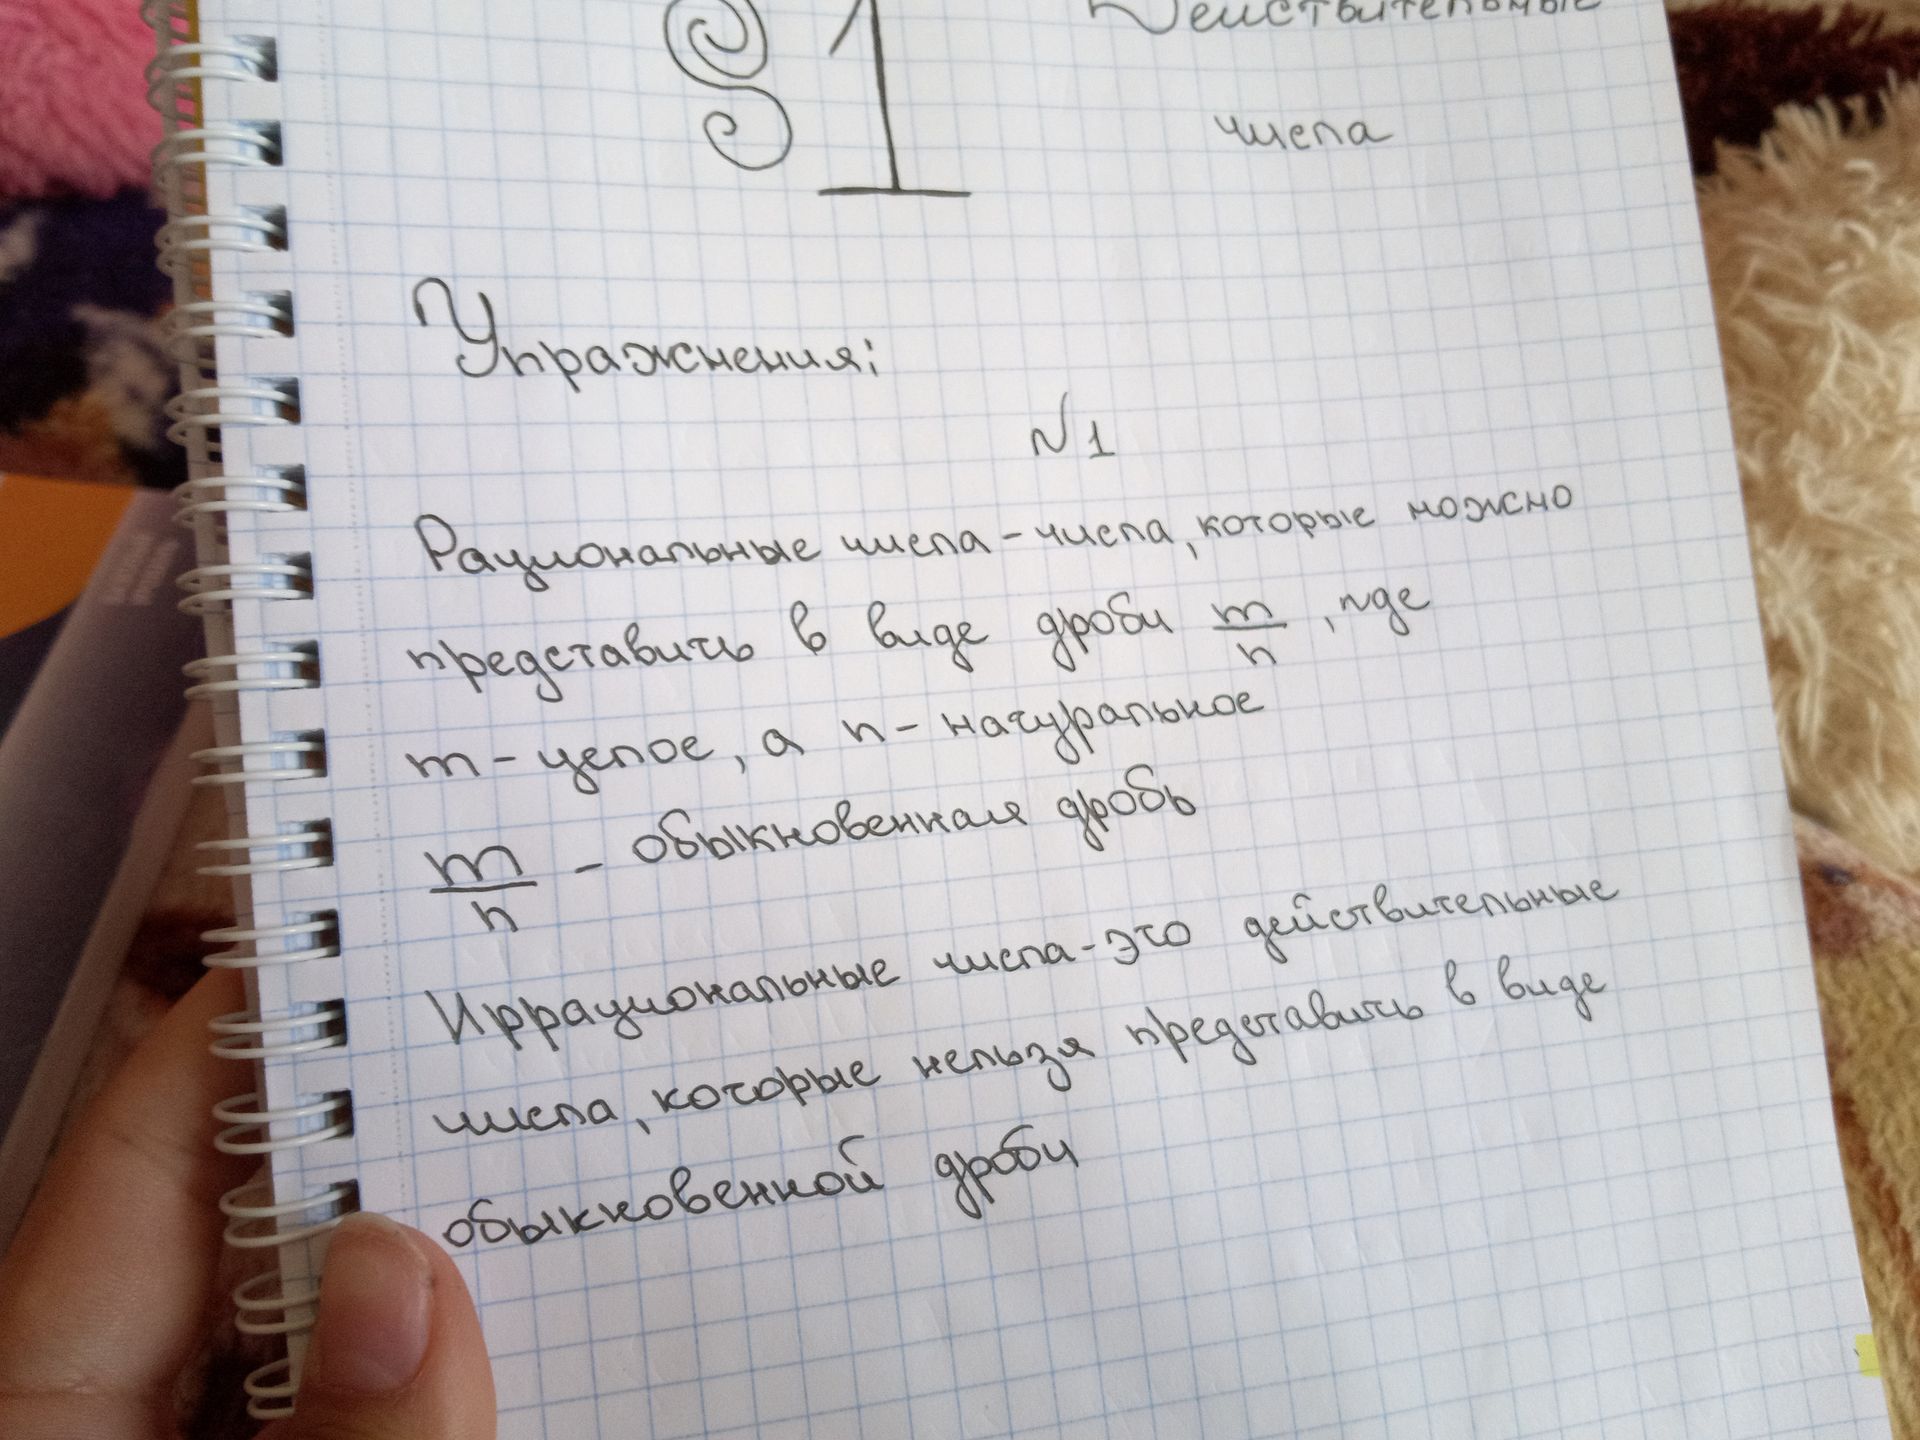 §1 Действительные
числа
Упражнения:
N1
Рациональные числа - числа, которые можно
представить в виде дроби m/n, где
m - целое, а n - натуральное
m/n - обыкновенная дробь
Иррациональные числа - это действительные
числа, которые нельзя представить в виде
обыкновенной дроби